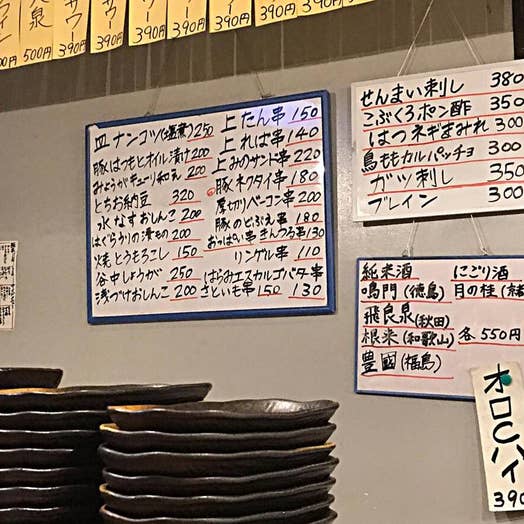 泉 500円
サワー 390円
サワー 390円
390円
390円
390円
390円
390円
皿ナンコツ(塩煮) 250
豚はつもとオイル漬け 200
みょうがキューリ和え 200
とちお納豆 320
水なすおしんこ 200
はぐらうりの漬もの 200
焼とうもろこし 150
谷中しょうが 250
浅づけおしんこ 200
上たん串 150
上ればー串 140
上みのサンド串 220
豚ネクタイ串 180
厚切りベーコン串 200
豚のどぶえ串 180
おっぱい串 きんつる串 130
リングル串 110
はらみエスカルゴバター串 130
さといも串 150
せんまい刺し 380
こぶくろポン酢 350
はつネギまみれ 300
鳥ももカルパッチョ 300
ガツ刺し 350
ブレイン 300
純米酒 にごり酒
鳴門(徳島) 月の桂
飛良泉(秋田)
根来(和歌山) 各550円
豊國(福島)
オロCハイ
390